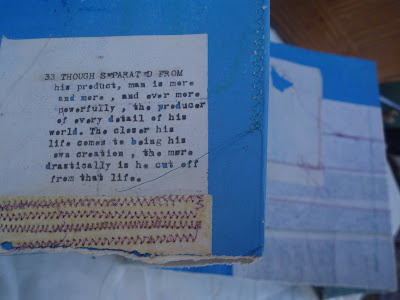 33 THOUGH SEPARATED FROM
his product, man is more
and more , and ever more
powerfully , the producer
of every detail of his
world. The closer his
life comes to being his
own creation , the more
drastically is he cut off
from that life.